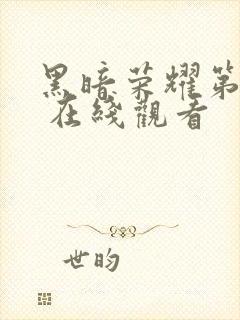 黑暗荣耀第
在綫觀看
世昀